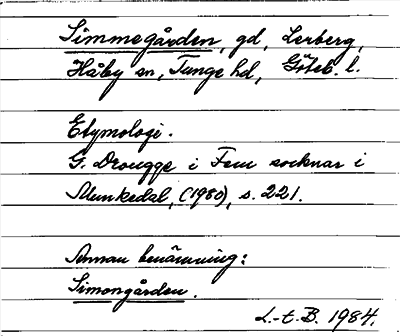 Simmegården, gd, Lerberg,
Håby sn, Tunge hd, Göteb. l.
Etymologi.
G. Drougge i Fem socknar i
Munkedal, (1980), s. 221.
Annan benämning:
Simongården.
L.-t. B. 1984.